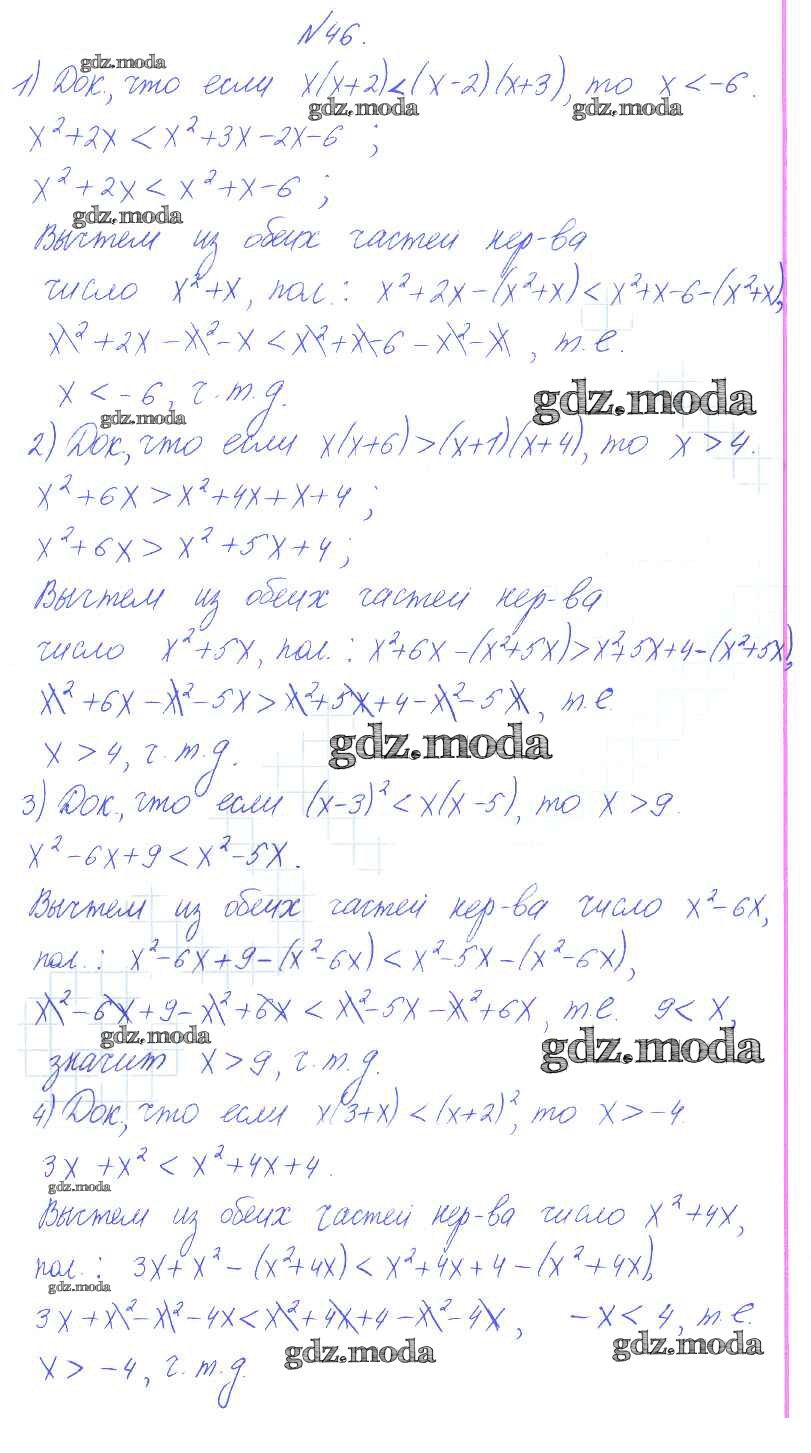 №46.
1) Док, что если x(x+2)<(x-2)(x+3), то x<-6.
x²+2x<x²+3x-2x-6;
x²+2x<x²+x-6;
Вычтем из обеих частей нер-ва
число x²+x, пол.: x²+2x-(x²+x)<x²+x-6-(x²+x),
x²+2x-x²-x<x²+x-6-x²-x, т.е.
x<-6, ч.т.д.
2) Док, что если x(x+6)>(x+1)(x+4), то x>4.
x²+6x>x²+4x+x+4;
x²+6x>x²+5x+4;
Вычтем из обеих частей нер-ва
число x²+5x, пол.: x²+6x-(x²+5x)>x²+5x+4-(x²+5x),
x²+6x-x²-5x>x²+5x+4-x²-5x, т.е.
x>4, ч.т.д.
3) Док, что если (x-3)²<x(x-5), то x>9.
x²-6x+9<x²-5x.
Вычтем из обеих частей нер-ва число x²-6x,
пол.: x²-6x+9-(x²-6x)<x²-5x-(x²-6x),
x²-6x+9-x²+6x<x²-5x-x²+6x, т.е. 9<x,
значит x>9, ч.т.д.
4) Док, что если x(3+x)<(x+2)², то x>-4.
3x+x²<x²+4x+4.
Вычтем из обеих частей нер-ва число x²+4x,
пол.: 3x+x²-(x²+4x)<x²+4x+4-(x²+4x),
3x+x²-x²-4x<x²+4x+4-x²-4x, -x<4, т.е.
x>-4, ч.т.д.
gdz.moda
gdz.moda
gdz.moda
gdz.moda
gdz.moda
gdz.moda
gdz.moda
gdz.moda
gdz.moda
gdz.moda
gdz.moda
gdz.moda
gdz.moda